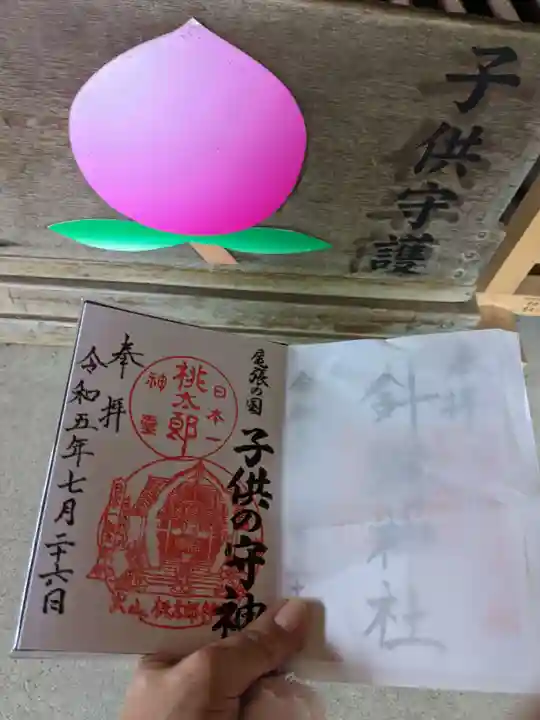 子供守護
尾張の国
子供の守神
日本一
桃太郎
神霊
犬山 桃太郎神社
奉拝
令和五年七月二十六日
針綱神社